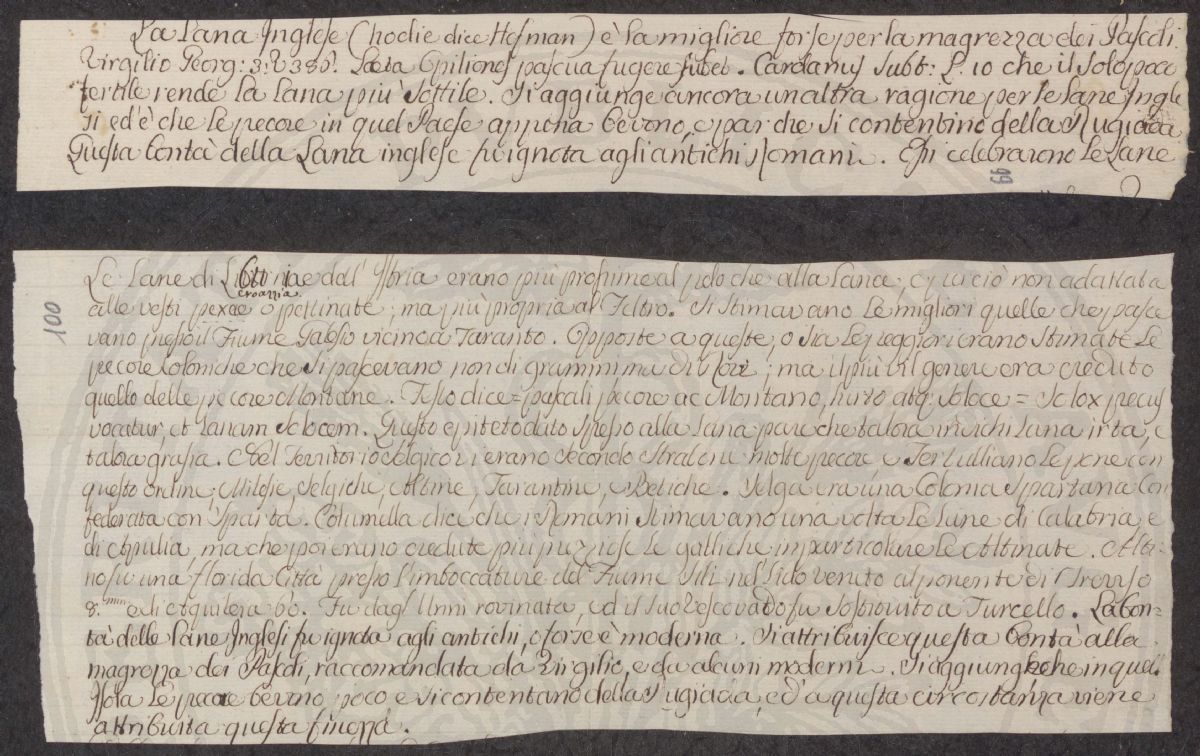 La Lana Inglese (hodie dice Hofman) è la migliore forse per la magrezza dei Pascoli.
Virgilio Georg: 3. V 386. Laeta Opiliones pascua fugere jubet. Cardanus Subt: L. 10 che il Solo poco
fertile rende la Lana più Sottile. Si aggiunge ancora un altra ragione per le Lane Ingle
si ed è che le pecore in quel Paese appena bevono, e par che Si contentino della Rugiada
Questa bontà della Lana inglese fu ignota agli antichi Romani. Essi celebrarono le Lane
99
100
Le Lane di e dall' Istria erano più prossime al pelo che alla Lana e perciò non adattata
Croazia
alle vesti pexae o pettinate; ma più propria al Feltro. Si Stimavano le migliori quelle che pasce
vano presso il Fiume Galeso vicino a Taranto. Opposte a queste, o sia le peggiori erano Stimate le
pecore Coloniche che Si pascevano non di grammi ma di ; ma il più vil genere era creduto
quello delle pecore Montane. Festo dice = pascali pecore ac Montano, hirto atq. soloce = Solox pecus
vocatur, et Lanam Solocem. Questo epiteto dato Spesso alla Lana pare che talora Lana irta, e
talora grassa. Nel Territorio Selgico vi erano Secondo Strabone molte pecore e Tertulliano le pone con
questo ordine; Milesie, Selgiche, Altine, Tarantine, e Betiche. Selga era una Colonia Spartana Con
federata con Sparta. Columella dice, che i Romani Stimavano una volta le Lane di Calabria, e
di Apulia, ma che poi erano credute più preziose le galliche in particolare le Altinate. Alti-
no fu una florida Città presso l'imboccature del Fiume Sili nel Lido veneto al ponente di Treviso
8. e di Aquileia 60. Fu dagl'Unni rovinata, ed il Suo Vescovado fu Sostituito a Turcello. La bon-
tà delle Lane Inglesi fu ignota agli antichi, o forse è moderna. Si attribuisce questa bontà alla
magrezza dei Pascoli, raccomandata da Virgilio, e da alcuni moderni. Si aggiunge che in quell
Isola le pecore bevono poco e si contentano della Rugiada, ed a questa circostanza viene
attribuita questa finezza.